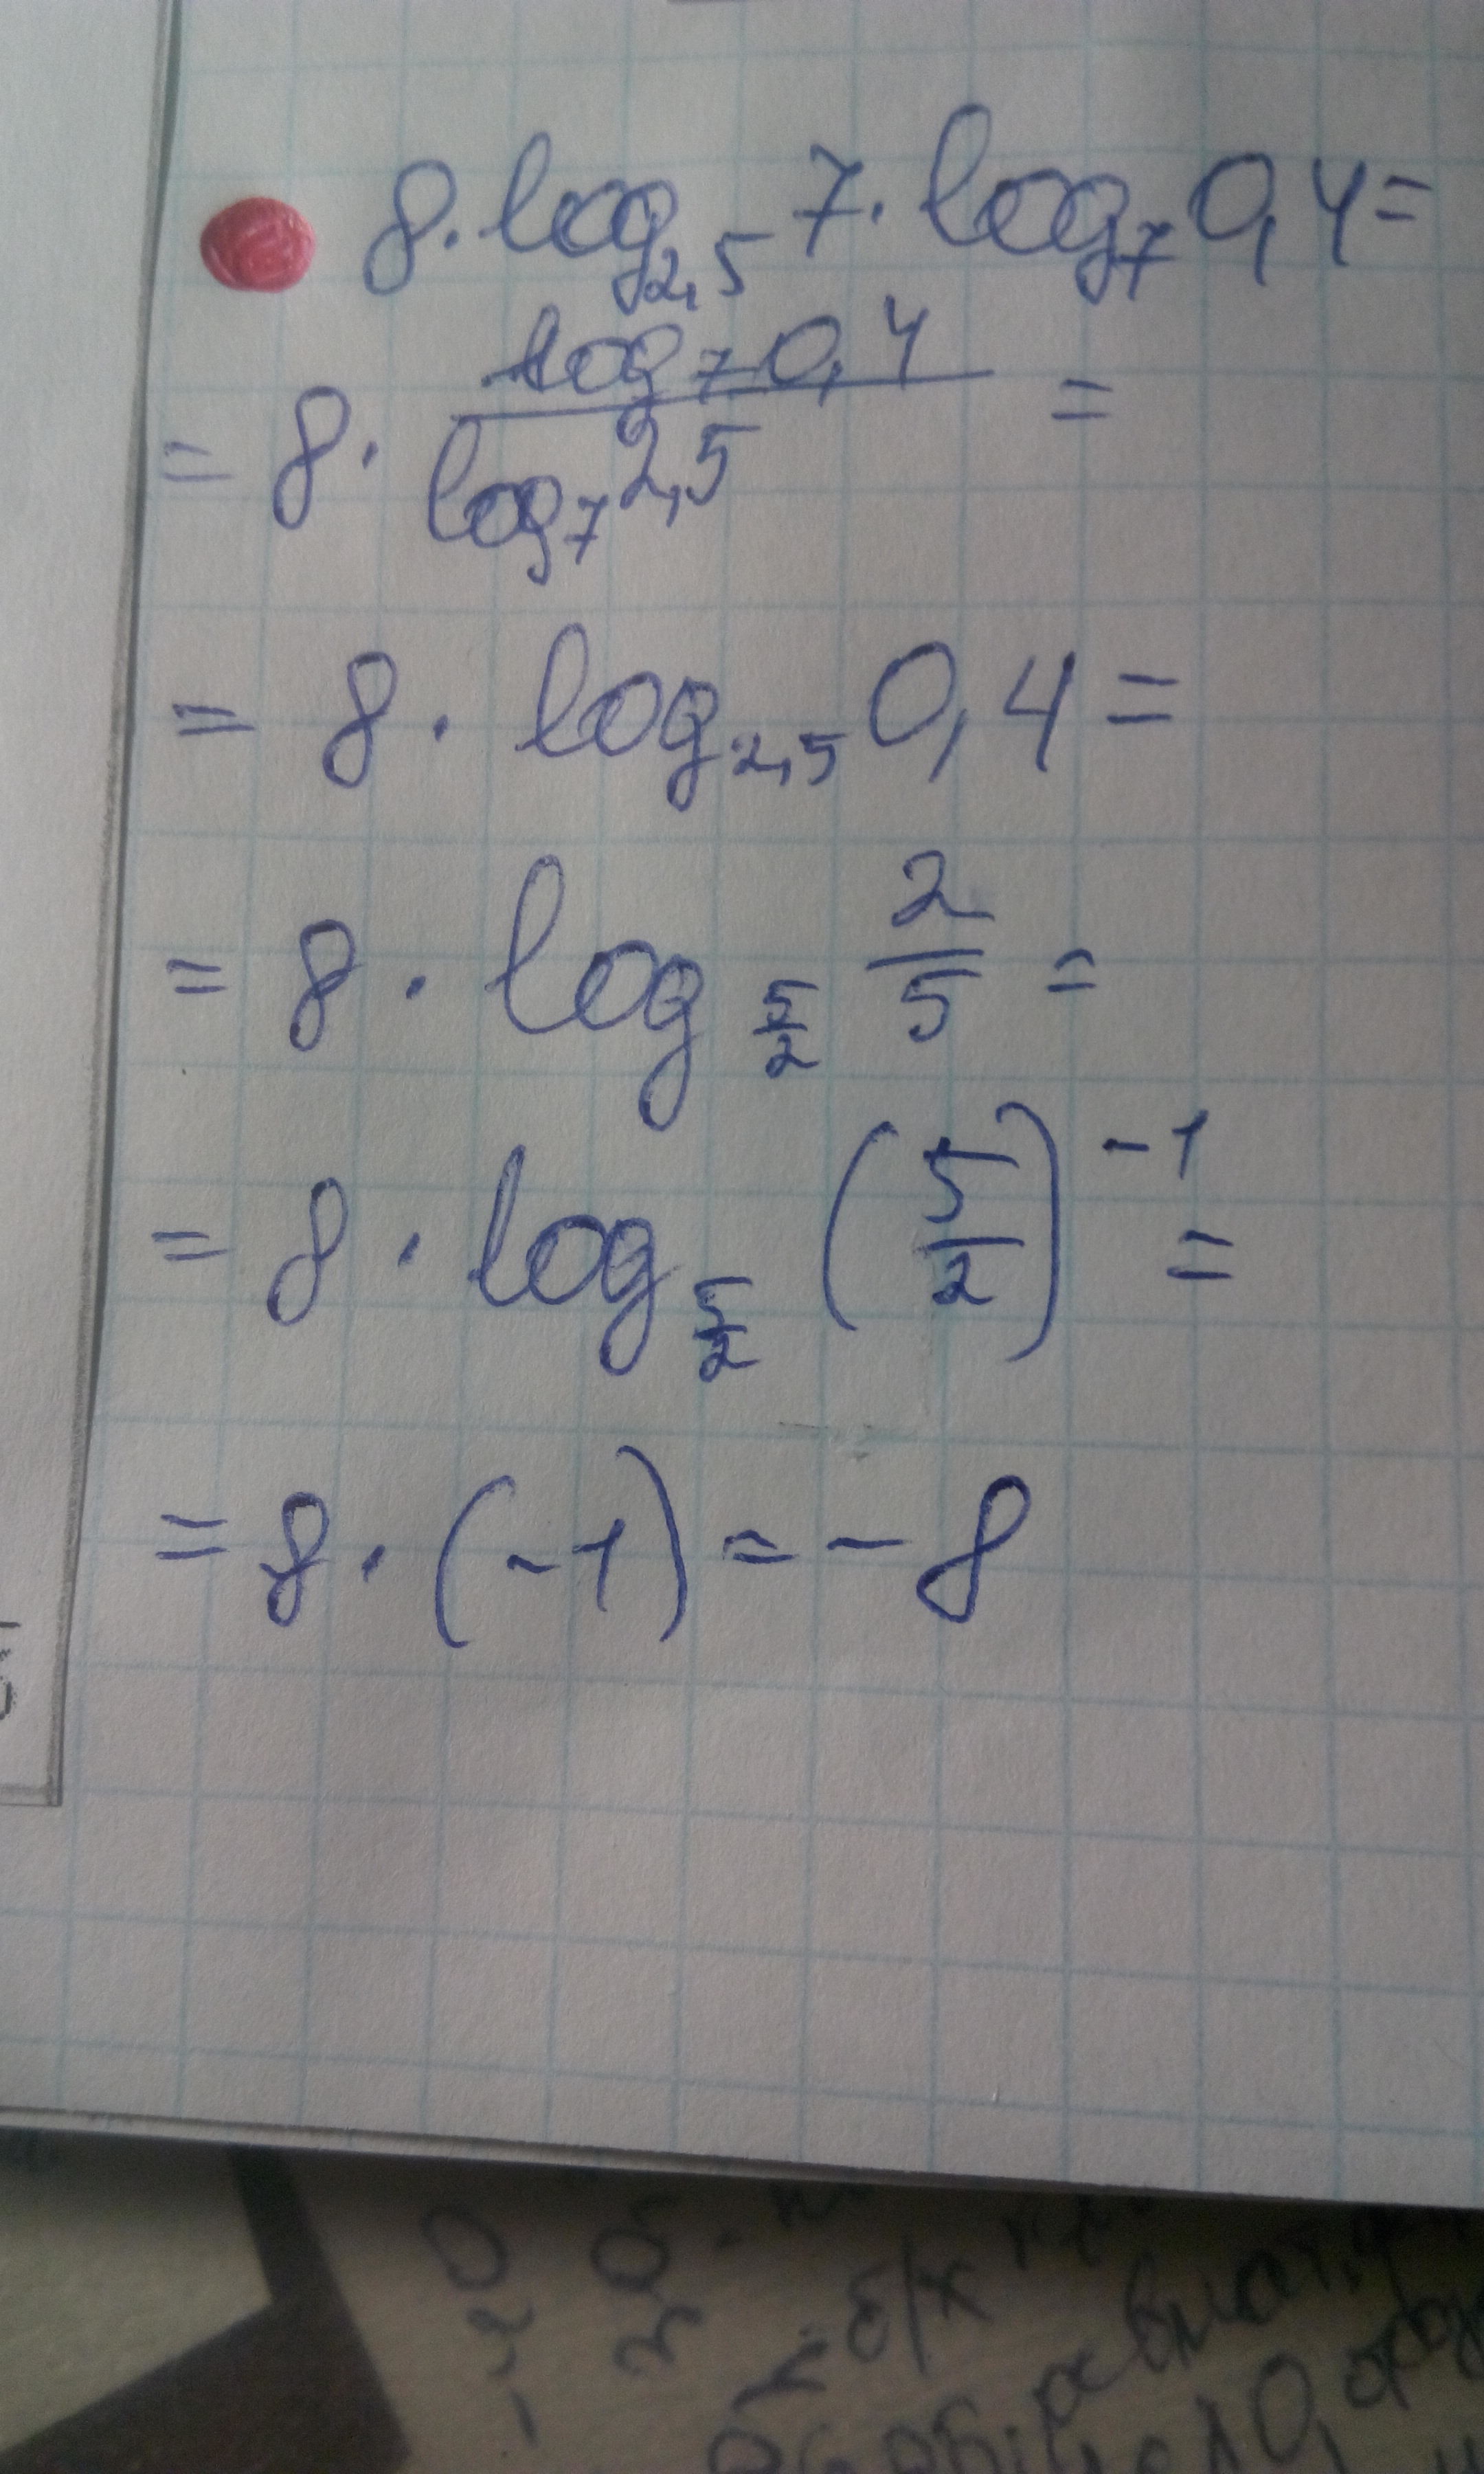 8·log₂,₅7·log₇0,4=
=8·(log₇0,4)/(log₇2,5)=
=8·log₂,₅0,4=
=8·log_(5/2) 2/5=
=8·log_(5/2) (5/2)⁻¹=
=8·(-1)=-8